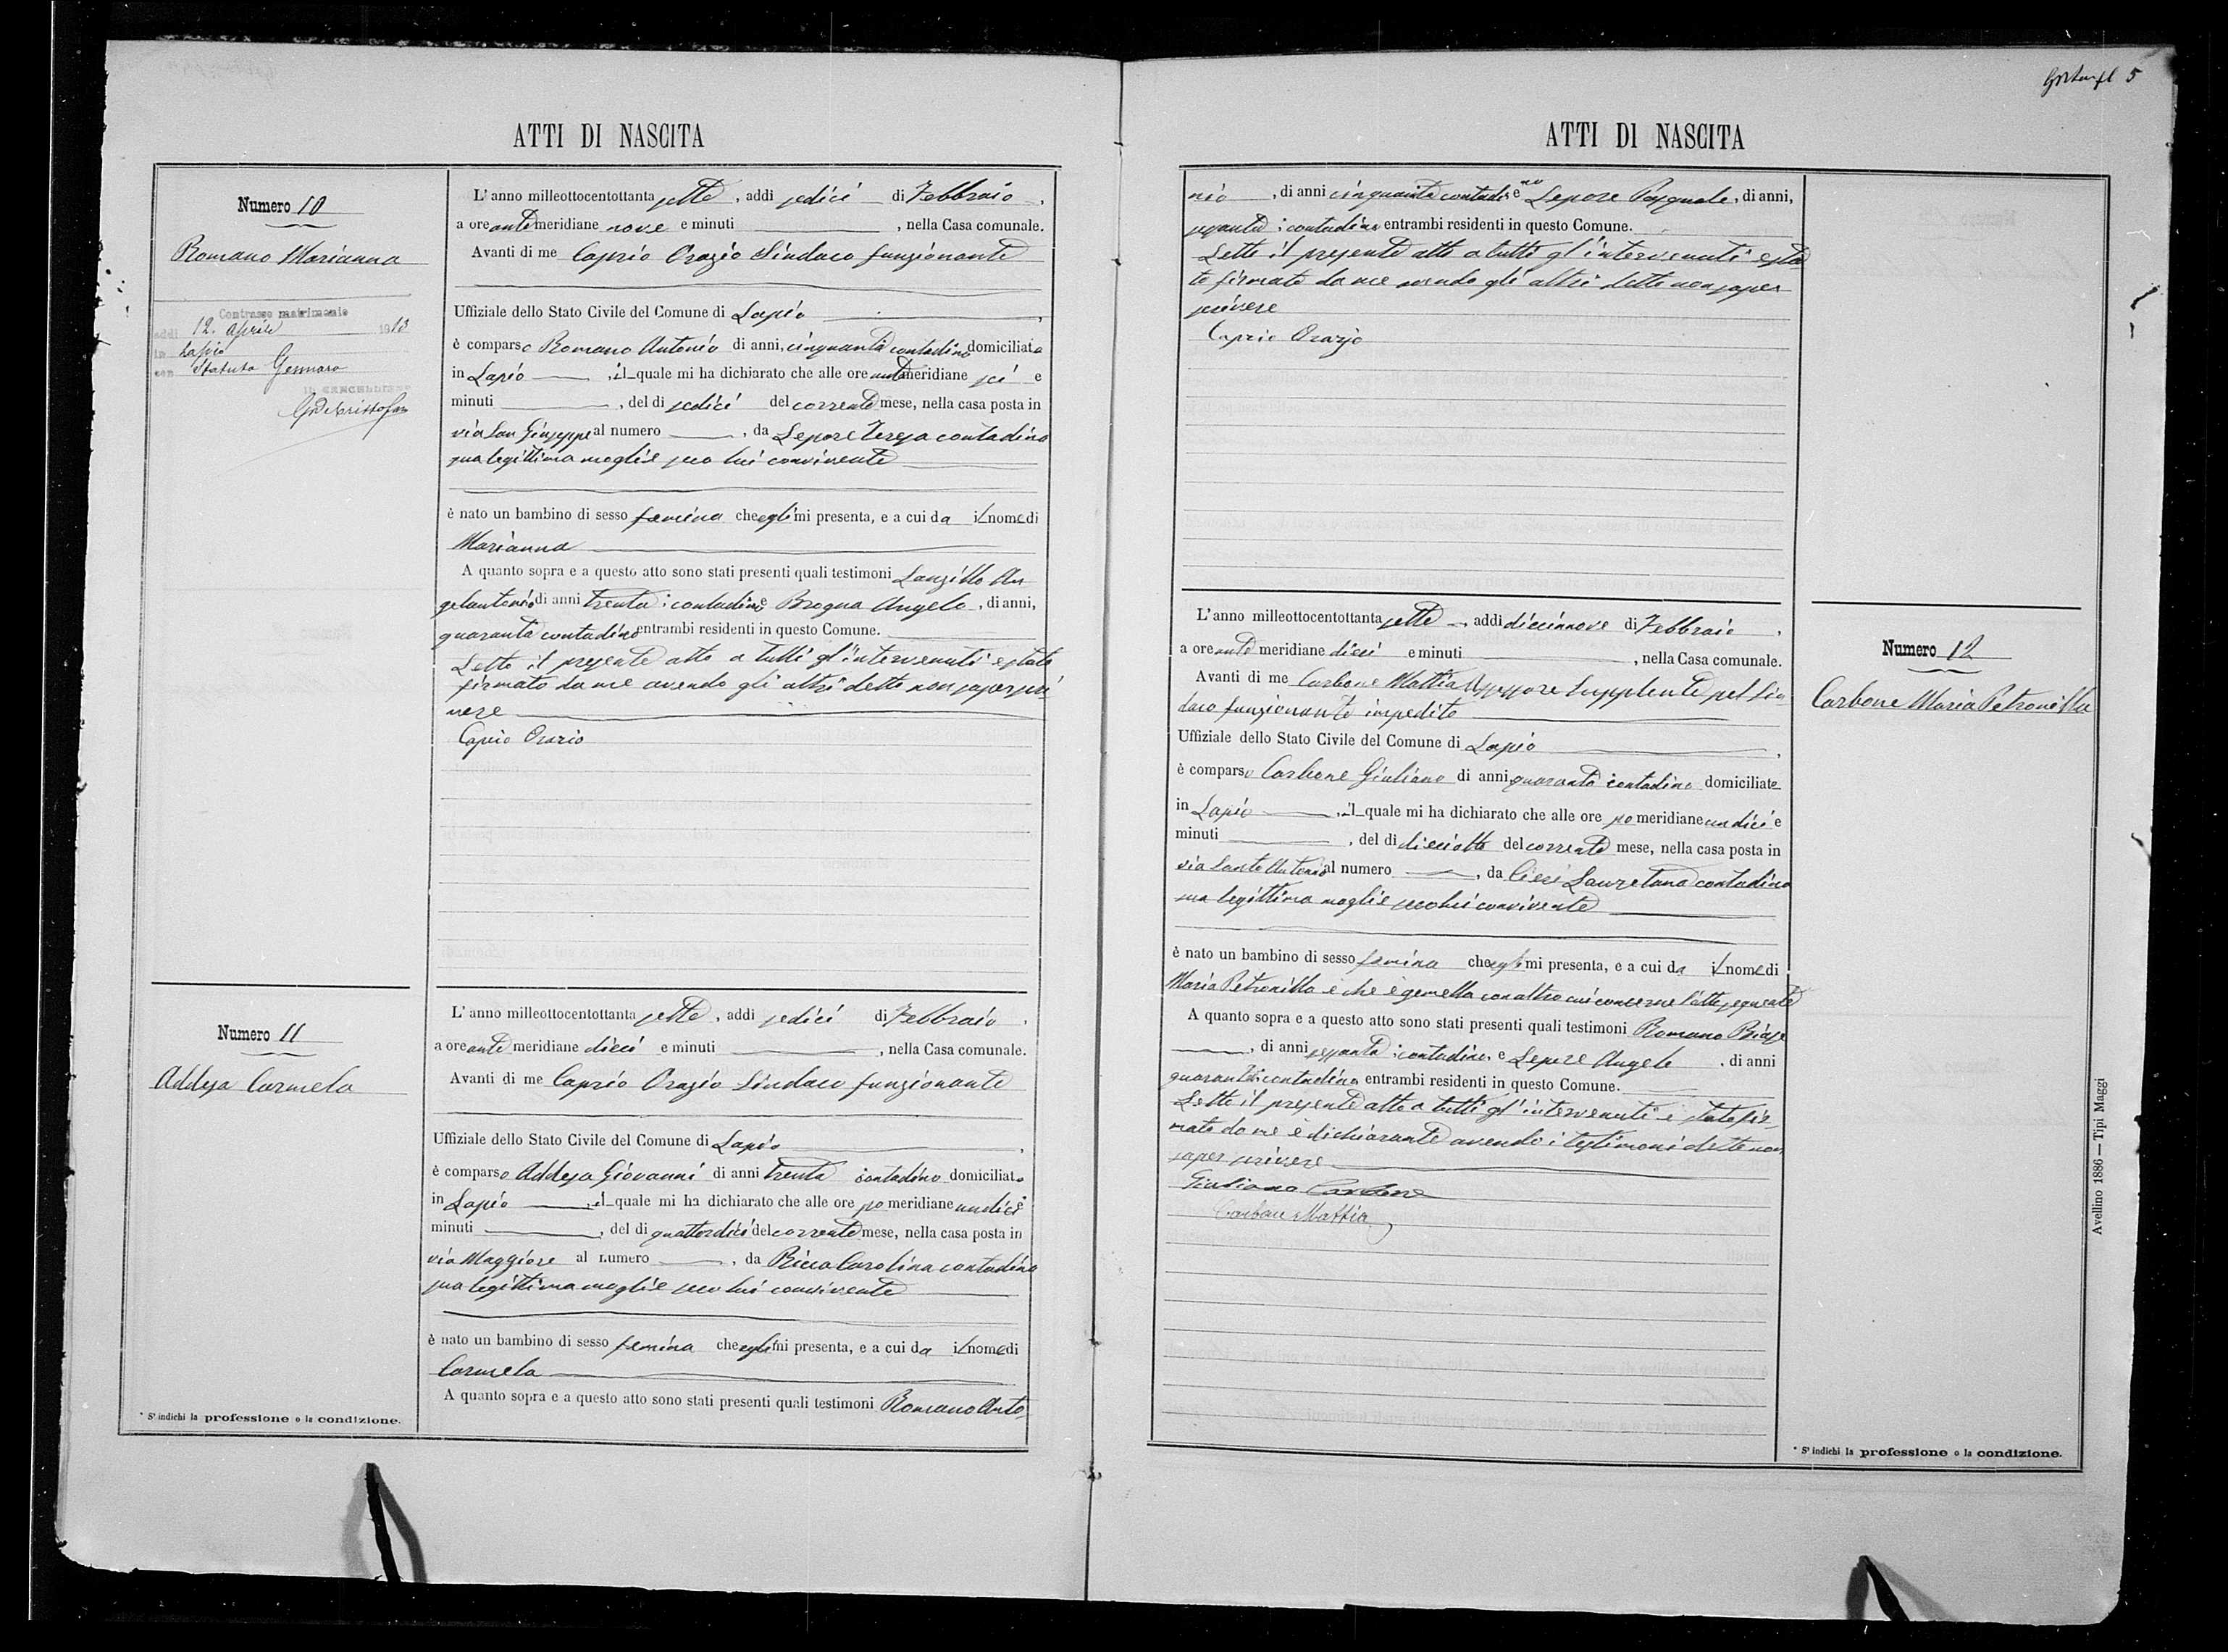 5
ATTI DI NASCITA
Numero 10
Romano Marianna
Contrasse matrimonio
addi 12 aprile 1913
in Lapio
con Statuto Gennaro
IL CANCELLIERE
L'anno milleottocentottanta sette, addi sedici di Febbraio,
a ore antemeridiane nove e minuti , nella Casa comunale.
Avanti di me Caprio Orazio Sindaco funzionante
Uffiziale dello Stato Civile del Comune di Lapio,
è comparso Romano Antonio di anni, cinquanta contadino domiciliato
in Lapio , il quale mi ha dichiarato che alle ore antemeridiane sei e
minuti , del di sedici del corrente mese, nella casa posta in
via San Giuseppe al numero , da Lepore Teresa contadina
sua legittima moglie seco lui convivente
è nato un bambino di sesso femina che egli mi presenta, e a cui da il nome di
Marianna
A quanto sopra e a questo atto sono stati presenti quali testimoni Lanzillo An
gelantonio di anni trenta; contadino e Brogna Angelo, di anni,
quaranta contadino entrambi residenti in questo Comune.
Letto il presente atto a tutti gl'intervenuti è stato
firmato da me avendo gli altri detto non saper scri
vere
Caprio Orazio
Numero 11
Addesa Carmela
L'anno milleottocentottanta sette, addi sedici di Febbraio,
a ore ante meridiane dieci e minuti , nella Casa comunale.
Avanti di me Caprio Orazio Sindaco funzionante
Uffiziale dello Stato Civile del Comune di Lapio,
è comparso Addesa Giovanni di anni trenta contadino domiciliato
in Lapio , il quale mi ha dichiarato che alle ore po meridiane undici e
minuti , del di quattordici del corrente mese, nella casa posta in
via Maggiore al numero , da Ricca Carolina contadina
sua legittima moglie seco lui convivente
è nato un bambino di sesso femina che egli mi presenta, e a cui da il nome di
Carmela
A quanto sopra e a questo atto sono stati presenti quali testimoni Romano Anto
* Si indichi la professione o la condizione.
ATTI DI NASCITA
nio , di anni cinquanta contadino e Lepore Pasquale, di anni,
sessanta; contadino entrambi residenti in questo Comune.
Letto il presente atto a tutti gl'intervenuti è sta
to firmato da me avendo gli altri detto non saper
scrivere
Caprio Orazio
L'anno milleottocentottanta sette, addi diecinnove di Febbraio,
a ore ante meridiane dieci e minuti , nella Casa comunale.
Avanti di me Carbone Mattia Assessore Supplente pel Sin
daco funzionante impedito
Uffiziale dello Stato Civile del Comune di Lapio,
è comparso Carbone Giuliano di anni quaranta contadino domiciliato
in Lapio , il quale mi ha dichiarato che alle ore po meridiane undici e
minuti , del di dieciotto del corrente mese, nella casa posta in
via Santo Antonio al numero , da Lauretana contadina
sua legittima moglie seco lui convivente
è nato un bambino di sesso femina che egli mi presenta, e a cui da il nome di
Maria Petronilla e che è gemella con altro cui concerne l'atto seguente
A quanto sopra e a questo atto sono stati presenti quali testimoni Romano Biase
, di anni sessanta; contadino, e Lepore Angelo , di anni
quaranta contadino entrambi residenti in questo Comune.
Letto il presente atto a tutti gl'intervenuti è stato fir
mato da me e dichiarante avendo i testimoni detto non
saper scrivere
Giuliano Carbone
Carbone Mattia
Numero 12
Carbone Maria Petronilla
Avellino 1886 — Tipi Maggi
* Si indichi la professione o la condizione.